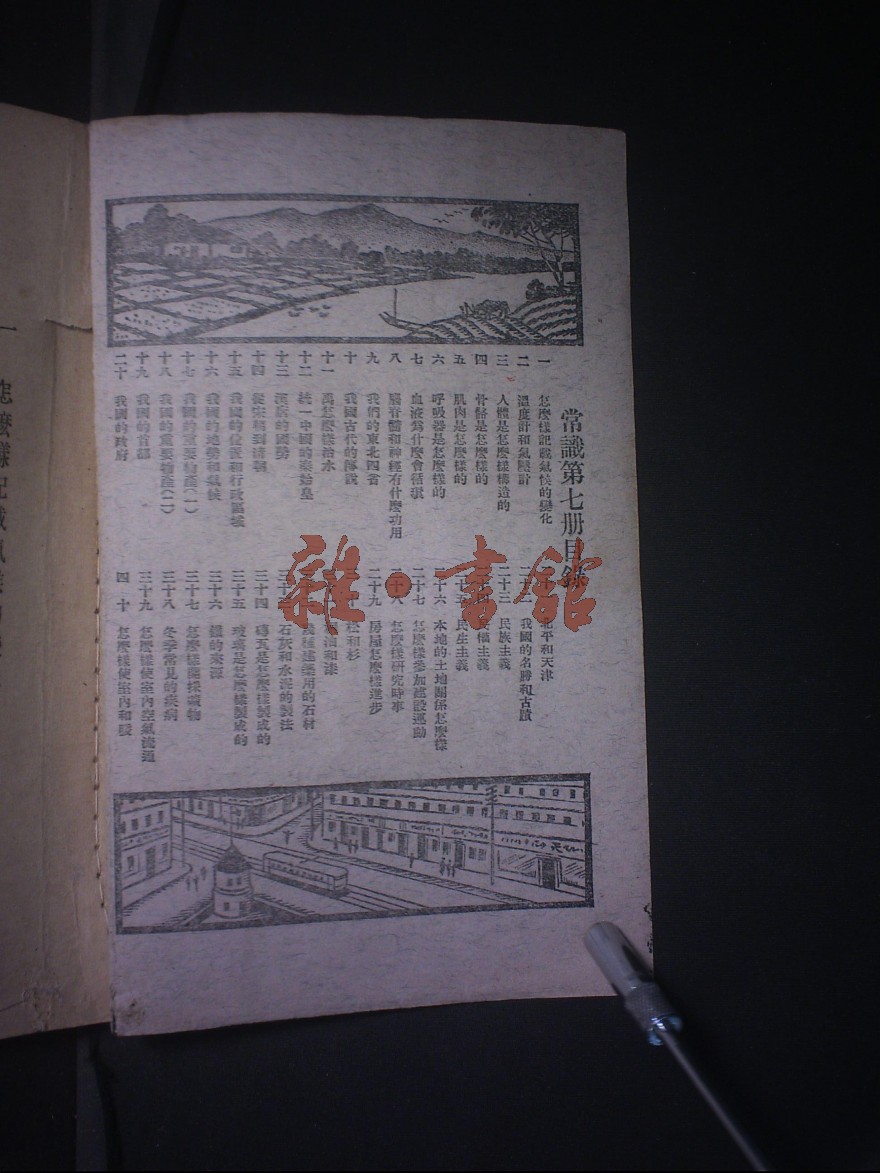 常識第七册目錄
一 怎麼樣記載氣候的變化
二 溫度計和氣壓計
三 人體是怎麼樣構造的
四 骨骼是怎麼樣的
五 肌肉是怎麼樣的
六 呼吸器是怎麼樣的
七 血液爲什麼會循環
八 腦脊髓和神經有什麼功用
九 我們的東北四省
十 我國古代的傳說
十一 禹怎麼樣治水
十二 統一中國的秦始皇
十三 漢族的國勢
十四 從宋朝到淸朝
十五 我國的位置和行政區域
十六 我國的地勢和氣候
十七 我國的重要物產(一)
十八 我國的重要物產(二)
十九 我國的首都
二十 我國的政府
北平和天津
二十二 我國的名勝和古蹟
二十三 民族主義
民權主義
民生主義
二十六 本地的土地關係怎麼樣
二十七 怎麼樣參加建設運動
二十八 怎麼樣研究時事
二十九 房屋怎麼樣進步
松和杉
桐油和漆
幾種建築用的石材
三十三 石灰和水泥的製法
三十四 磚瓦是怎麼樣製成的
三十五 玻璃是怎麼樣製成的
三十六 鐵的來源
三十七 怎麼樣開採礦物
三十八 冬季常見的疾病
三十九 怎麼樣使室內空氣流通
四十 怎麼樣使室內和暖
一 怎麼樣記載氣候的
雜·書館